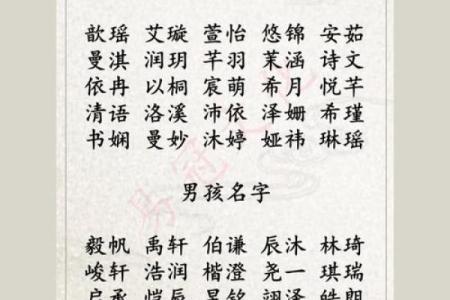 歆瑶 艾璇 萱怡 悠锦 安茹
曼淇 润玥 芊羽 茉涵 诗文
依冉 以桐 宸萌 希月 悦芊
清语 洛溪 沛依 泽姗 希瑾
书娴 曼妙 沐婷 娅祎 琳瑶
男孩名字
毅帆 禹轩 伯谦 辰沐 林琦
峻轩 浩润 楷澄 尧一 琪瑞
启承 恺辰 昊铭 翊泽 皓朗